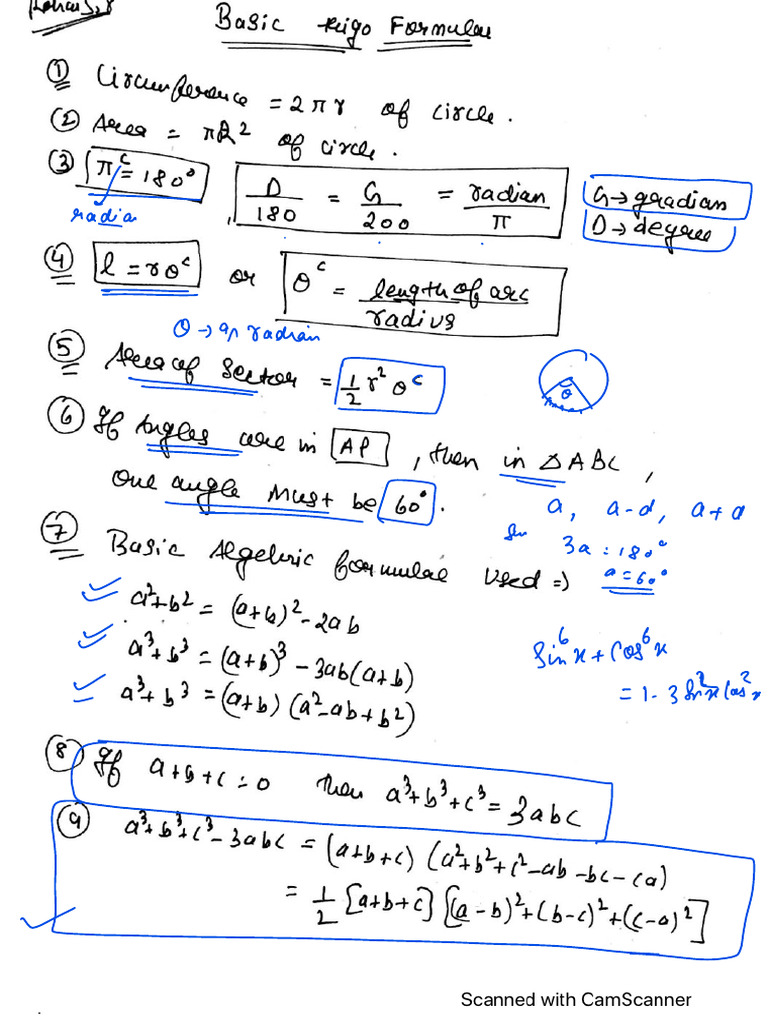 Basic Trigo Formulae
① Circumference = 2πr of circle.
② Area = πR² of circle.
③ π^c = 180° , D/180 = G/200 = radian/π G → gradian
radia D → degree
④ l = rθ^c or θ^c = length of arc/radius
θ → radian
⑤ Area of Sector = 1/2 r²θ^c θ
⑥ If Angles are in AP , then in △ABC ,
One angle Must be 60° .
a, a-d, a+d
3a = 180°
a = 60°
⑦ Basic Algebric formulae used ⇒
a²+b² = (a+b)² - 2ab
a³+b³ = (a+b)³ - 3ab(a+b)
a³+b³ = (a+b) (a²-ab+b²)
Sin⁶x + Cos⁶x
= 1 - 3 Sin²x Cos²x
⑧ If a+b+c = 0 then a³+b³+c³ = 3abc
⑨ a³+b³+c³-3abc = (a+b+c) (a²+b²+c²-ab-bc-ca)
= 1/2 [a+b+c] [(a-b)²+(b-c)²+(c-a)²]
Scanned with CamScanner